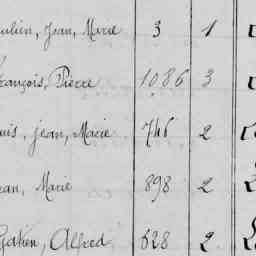 ulien, Jean, Marie 3 1
rançois, Pierre 1086 3
uis, Jean, Marie 746 2
ean, Marie 898 2
Alfred 628 2